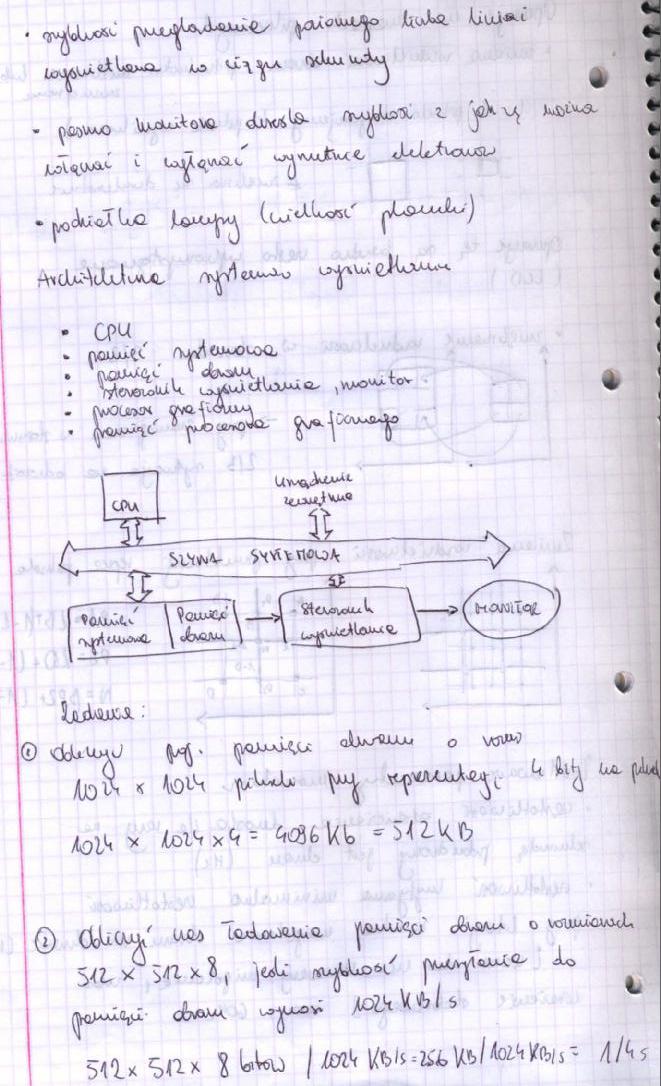 • szybkość przeglądania poziomego liczba linii
wyświetlana w ciągu sekundy
• pasmo monitora określa szybkość z jaką można
włączać i wyłączać wyrzutnię elektronów
• podziałka lampy (wielkość plamki)
Architektura systemów wyświetlania
• CPU
• pamięć systemowa
• pamięć obrazu
• sterownik wyświetlania, monitor
• procesor graficzny
• pamięć procesora graficznego
CPU
Urządzenie
zewnętrzne
SZYNA SYSTEMOWA
Pamięć
systemowa
Pamięć
obrazu
Sterownik
wyświetlania
MONITOR
Zadanie:
① Obliczyć poj. pamięci obrazu o rozm
1024 x 1024 pikseli przy reprezentacji 4 bity na piksel
1024 x 1024 x 4 = 4096 Kb = 512 KB
② Obliczyć czas ładowania pamięci obrazu o rozmiarach
512 x 512 x 8, jeśli szybkość przesyłania do
pamięci obrazu wynosi 1024 KB/s
512 x 512 x 8 bitów / 1024 KB/s = 256 KB/1024KB/s = 1/4 s